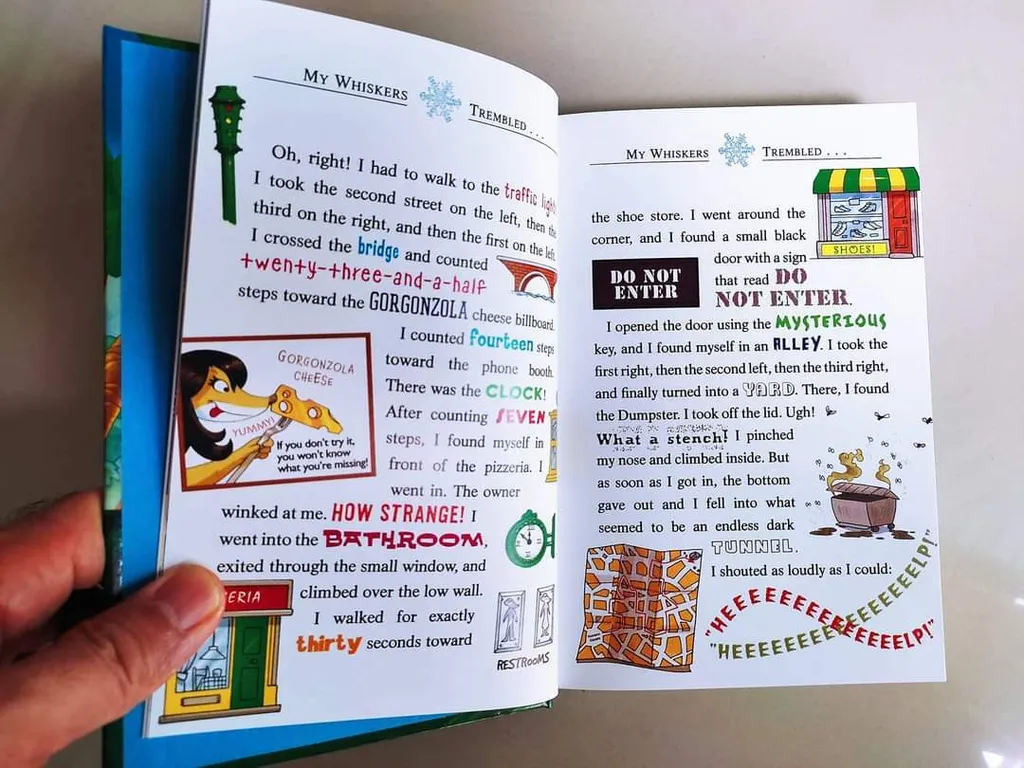 MY WHISKERS TREMBLED . . .
Oh, right! I had to walk to the traffic light.
I took the second street on the left, then the
third on the right, and then the first on the left.
I crossed the bridge and counted
twenty-three-and-a-half
steps toward the GORGONZOLA cheese billboard.
I counted fourteen steps
toward the phone booth.
There was the CLOCK!
After counting SEVEN
steps, I found myself in
front of the pizzeria. I
went in. The owner
winked at me. HOW STRANGE! I
went into the BATHROOM,
exited through the small window, and
climbed over the low wall.
I walked for exactly
thirty seconds toward
GORGONZOLA
CHEESE
YUMMY!
If you don't try it,
you won't know
what you're missing!
ERIA
RESTROOMS
MY WHISKERS TREMBLED . . .
the shoe store. I went around the
corner, and I found a small black
door with a sign
that read DO
NOT ENTER.
SHOES!
DO NOT
ENTER
I opened the door using the MYSTERIOUS
key, and I found myself in an ALLEY. I took the
first right, then the second left, then the third right,
and finally turned into a YARD. There, I found
the Dumpster. I took off the lid. Ugh!
What a stench! I pinched
my nose and climbed inside. But
as soon as I got in, the bottom
gave out and I fell into what
seemed to be an endless dark
TUNNEL.
I shouted as loudly as I could:
"HEEEEEEEEEEEEEEELP!"
"HEEEEEEEEEEEEEEEEEELP!"